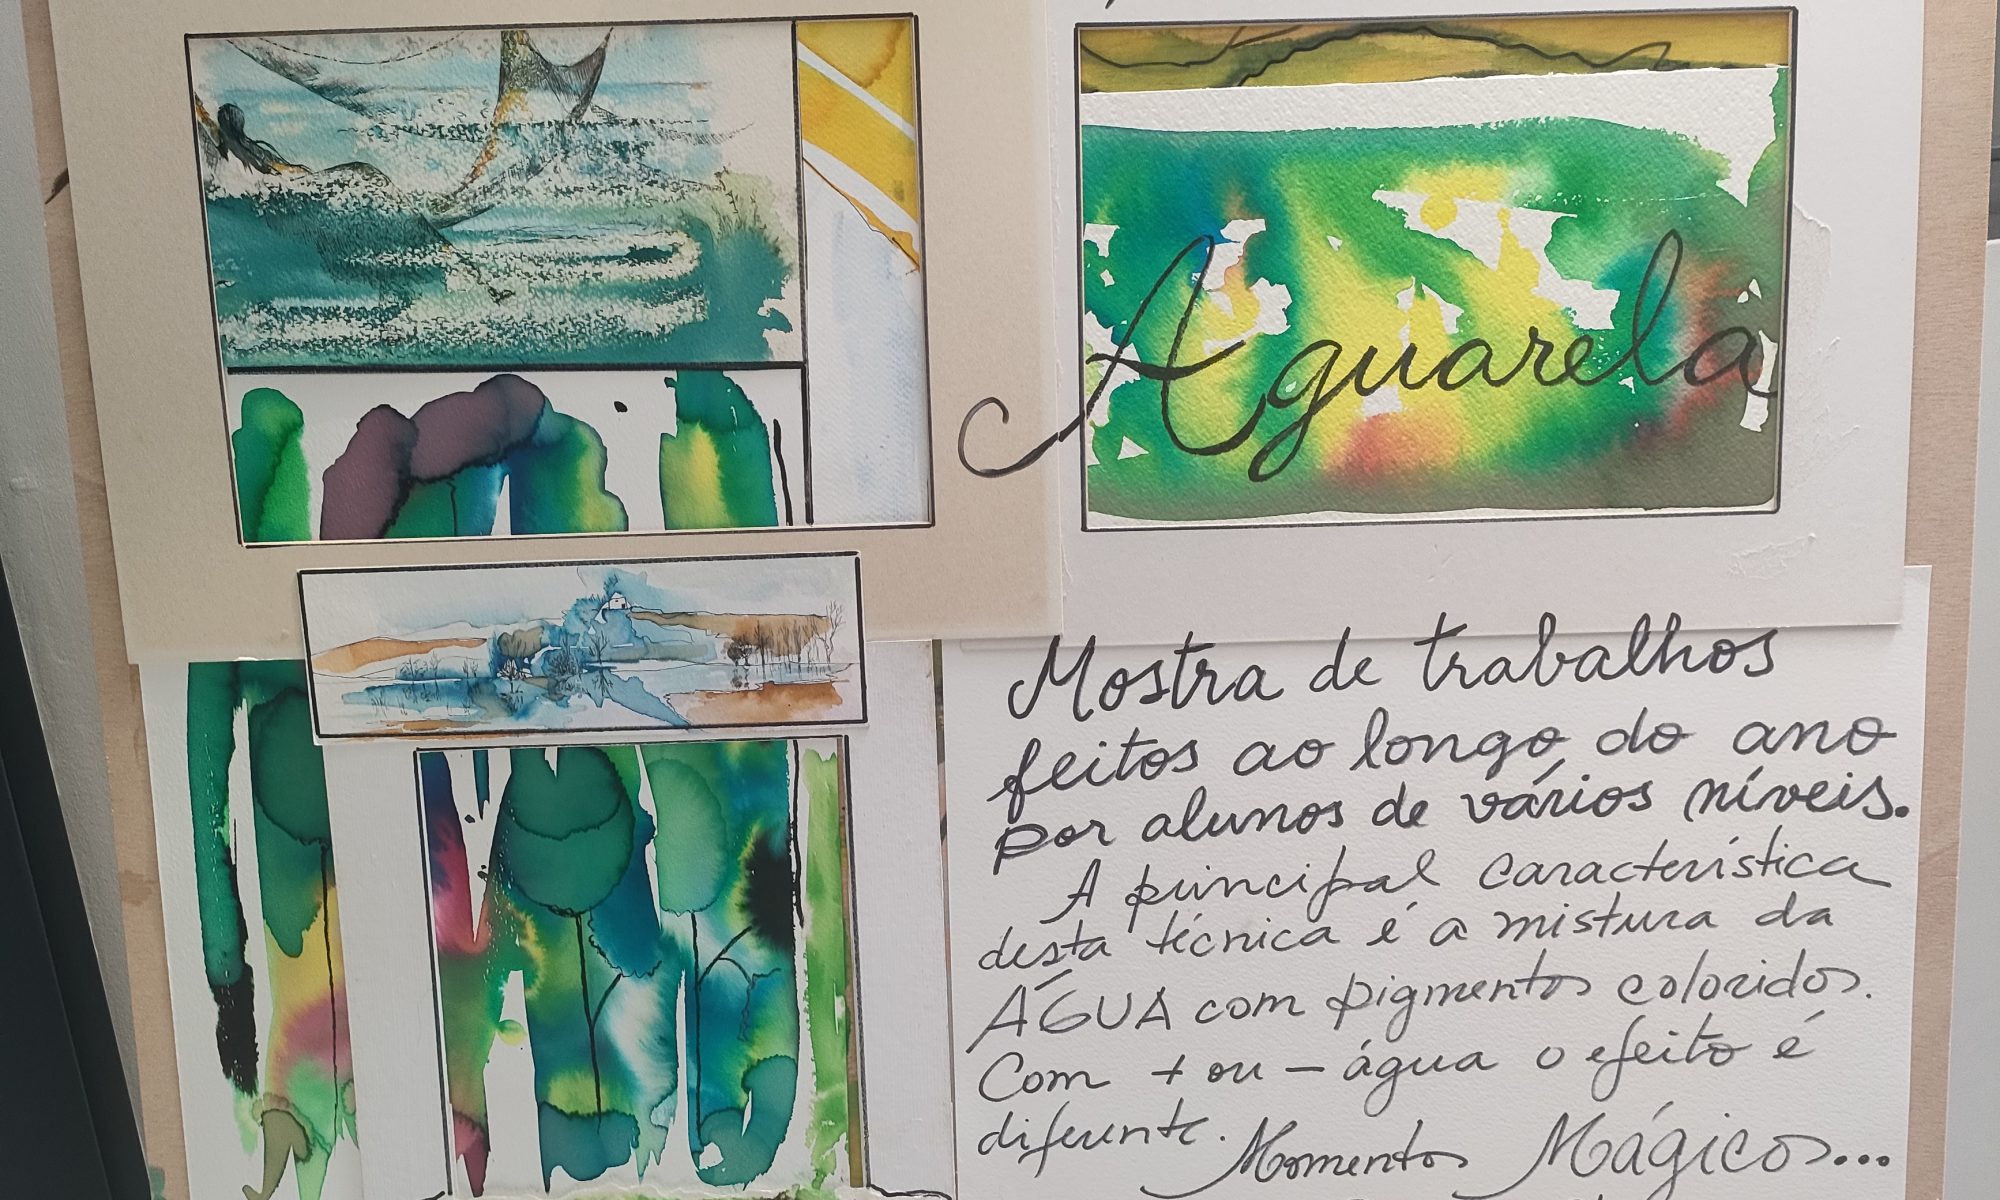 Aguarela
Mostra de trabalhos
feitos ao longo do ano
por alunos de vários níveis.
A principal característica
desta técnica é a mistura da
ÁGUA com pigmentos coloridos.
Com + ou - água o efeito é
diferente.
Momentos Mágicos...